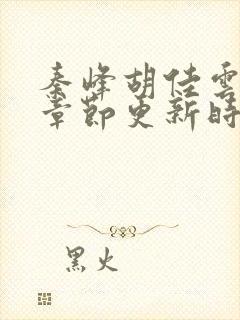 秦峰胡佳雲
章節更新時
黑火